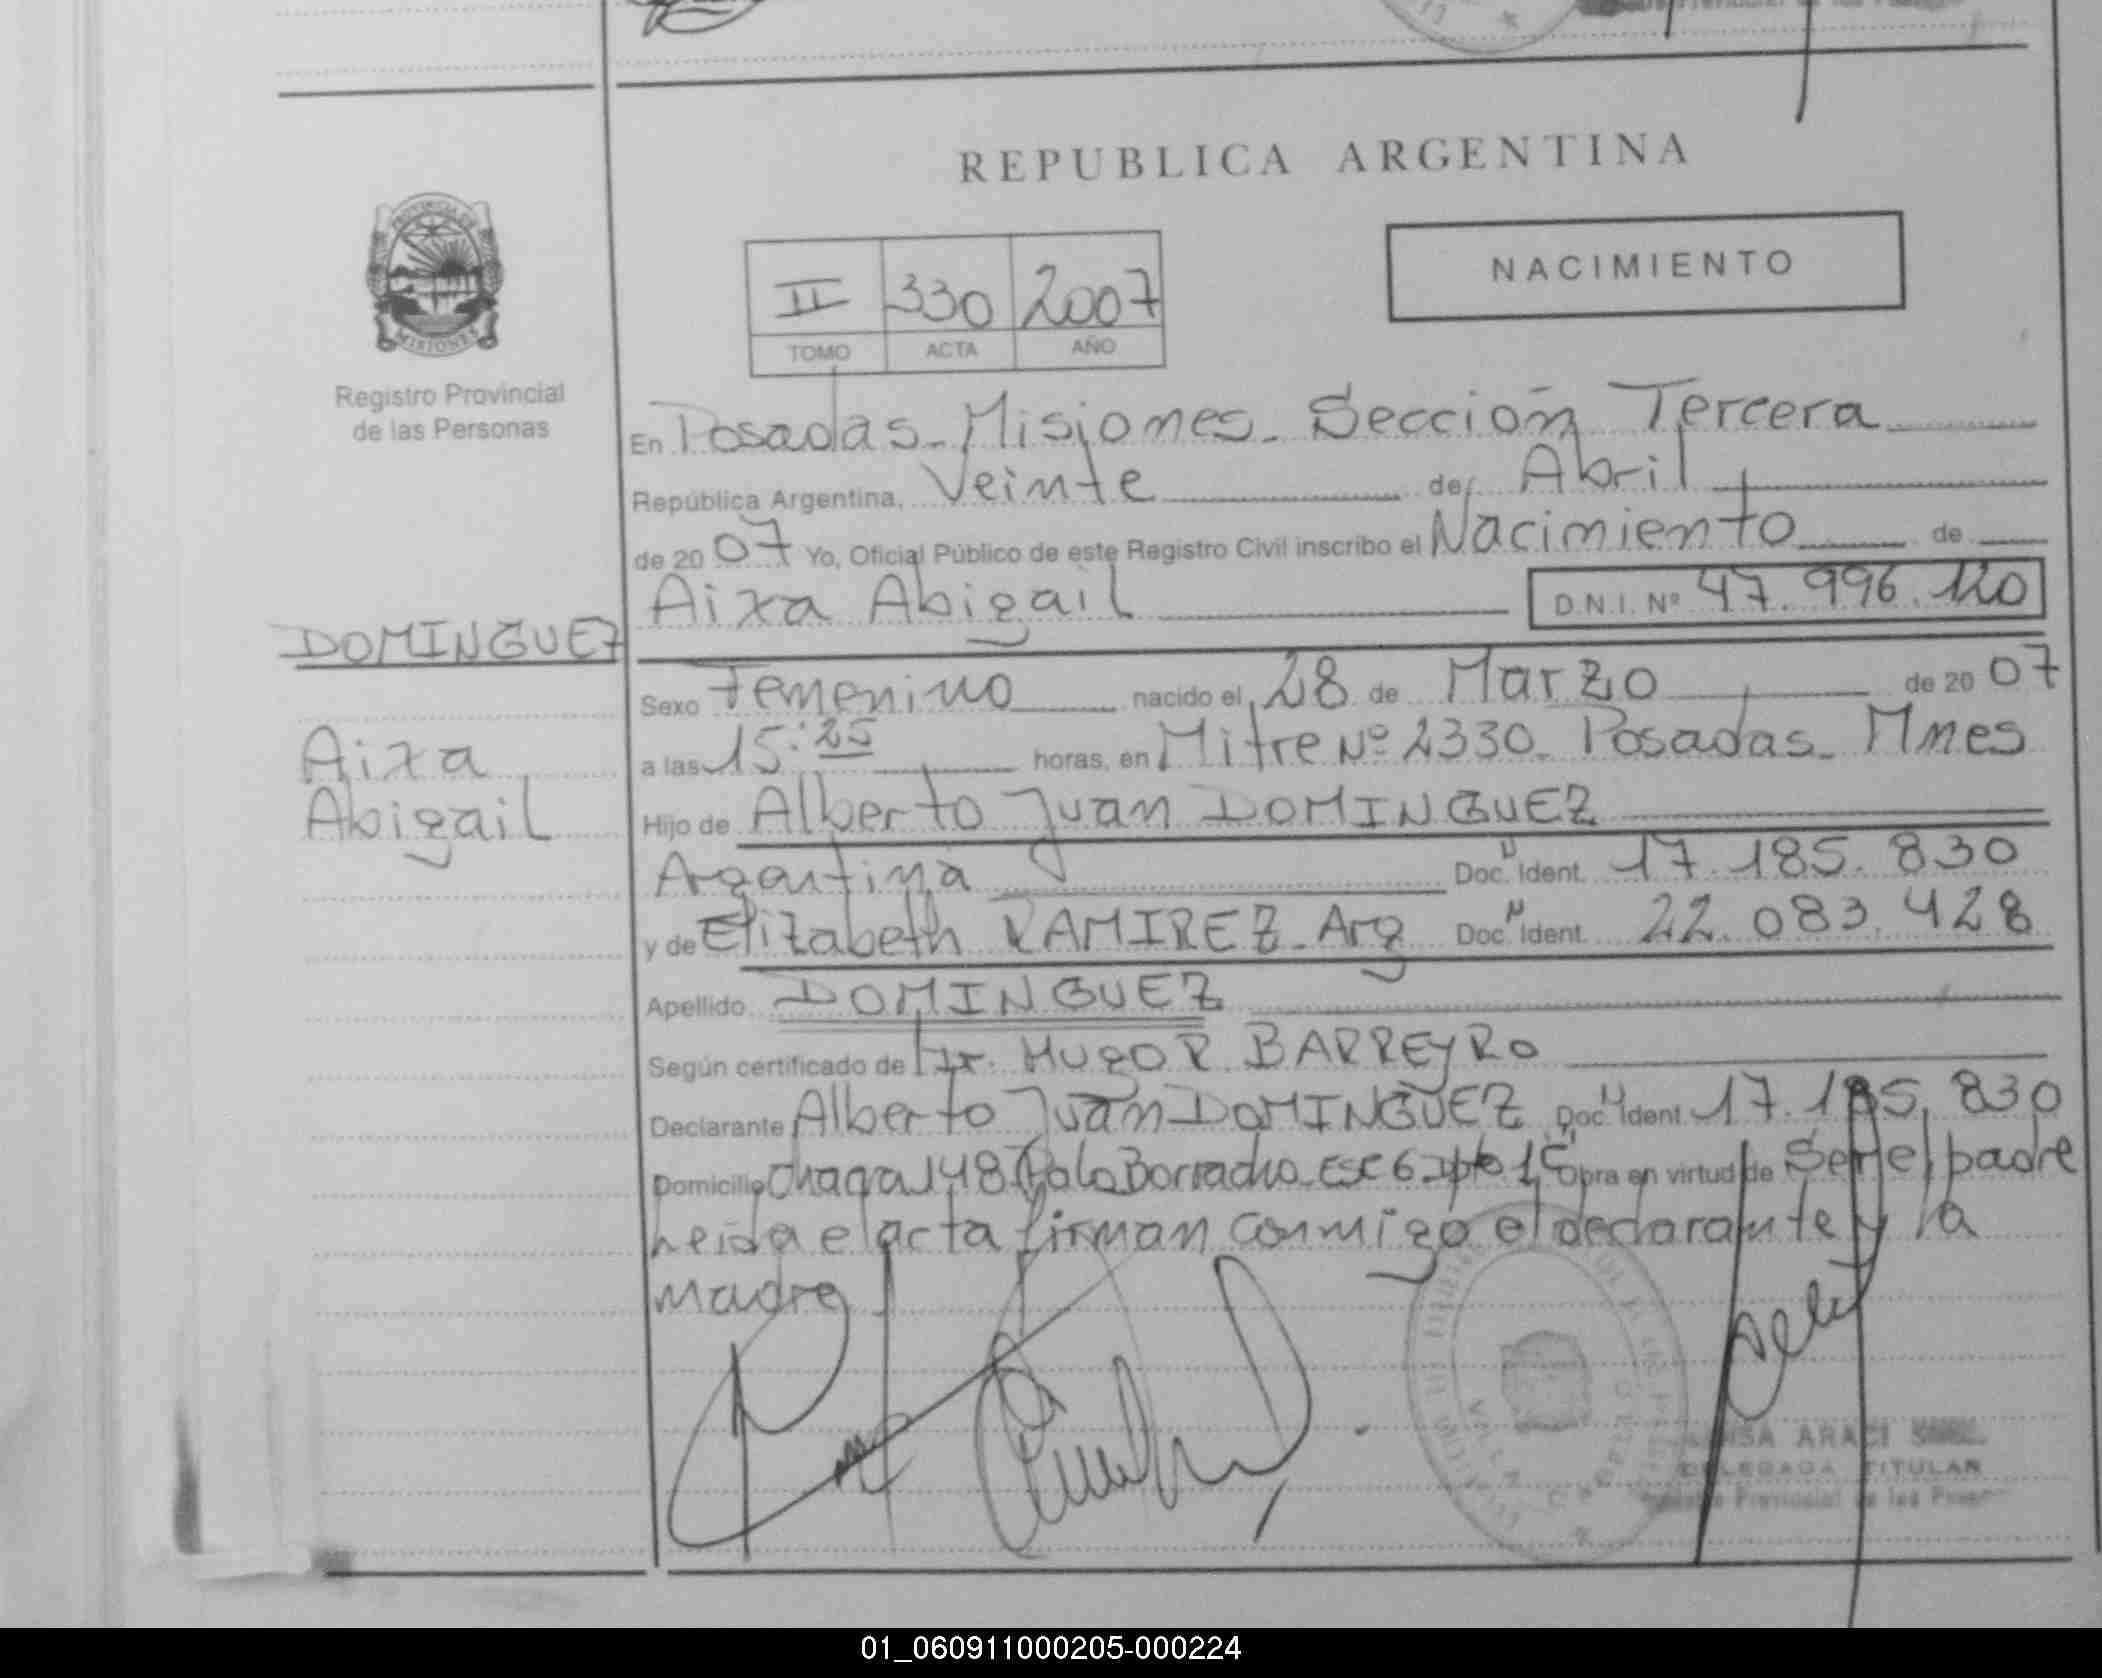 REPUBLICA ARGENTINA
PROVINCIA DE
MISIONES
Registro Provincial
de las Personas
II 330 2007
TOMO ACTA AÑO
NACIMIENTO
En Posadas - Misiones - Sección Tercera
República Argentina, Veinte de Abril
de 2007 Yo, Oficial Público de este Registro Civil inscribo el Nacimiento de
Aixa Abigail D.N.I. Nº 47.996.120
DOMINGUEZ
Aixa
Abigail
Sexo Femenino nacido el 28 de Marzo de 2007
a las 15:25 horas, en Mitre Nº 2330 - Posadas - Mnes
Hijo de Alberto Juan DOMINGUEZ
Argentina Doc. Ident. 17.185.830
y de Elizabeth RAMIREZ - Arg Doc. Ident. 22.083.428
Apellido DOMINGUEZ
Según certificado de Dr. Hugo R. BARREYRO
Declarante Alberto Juan DOMINGUEZ Doc. Ident. 17.185.830
Domicilio Chacra 148 Palo Borracho - Esc 6 Dpto 1 Obra en virtud de Ser el padre
Leida el acta firman conmigo el declarante y la
madre
ARACI
DELEGADA TITULAR
Provincial de las
01_060911000205-000224